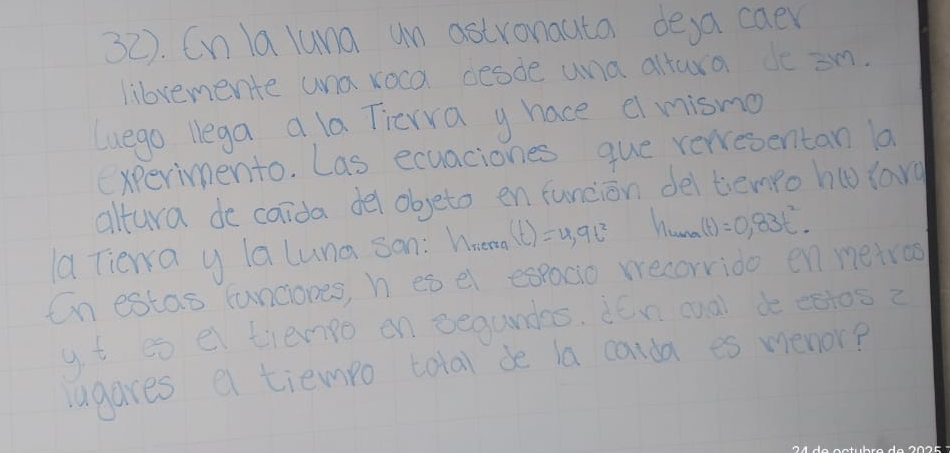 32). En la luna un astronauta deja caer
libremente una roca desde una altura de 3m.
Luego llega a la Tierra y hace el mismo
experimento. Las ecuaciones que rerresentan la
altura de caída del objeto en función del tiempo h(t) para
la Tierra y la Luna son: hTierra(t)=4,9t² hLuna(t)=0,83t².
En estas funciones, h es el espacio rrecorrido en metros
y t es el tiempo en segundos. ¿En cual de estos 2
lugares el tiempo total de la caida es menor?
24 de octubre de 2025